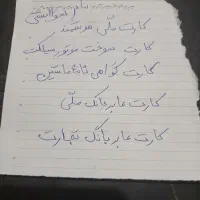 کارت ملی هوشمند
کارت سوخت موتور سیکلت
کارت گواهی نامه ماشین
کارت عابر بانک ملی
کارت عابر بانک تجارت